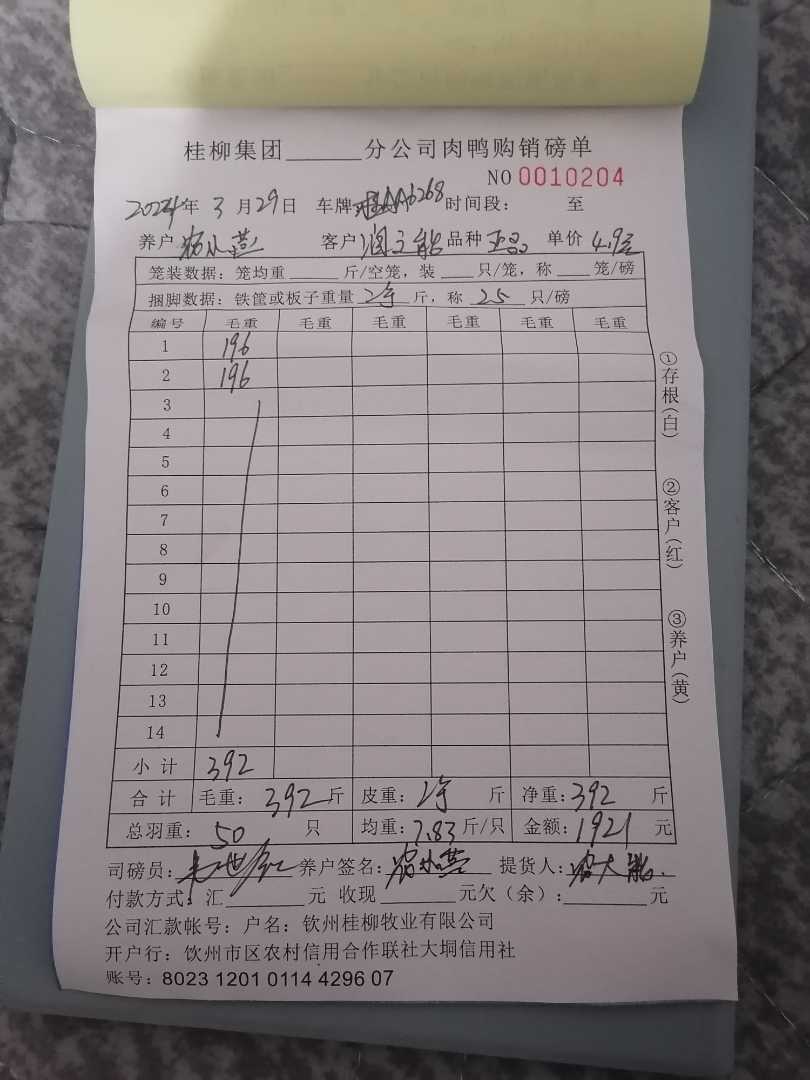 桂柳集团______分公司肉鸭购销磅单
NO 0010204
2024年 3 月29日 车牌 A6268 时间段： 至
养户 燕 客户 品种 正品 单价 4.9元
笼装数据：笼均重____斤/空笼，装___只/笼，称___笼/磅
捆脚数据：铁筐或板子重量 斤，称 25 只/磅
编号 毛重 毛重 毛重 毛重 毛重 毛重
1 196
2 196
3
4
5
6
7
8
9
10
11
12
13
14
小计 392
合计 毛重：392斤 皮重： 斤 净重：392 斤
总羽重：50 只 均重：7.83斤/只 金额：1921元
司磅员： 养户签名： 燕 提货人：
付款方式：汇______元 收现______元欠（余）：______元
公司汇款帐号：户名：钦州桂柳牧业有限公司
开户行：钦州市区农村信用合作联社大垌信用社
账号：8023 1201 0114 4296 07
①存根(白)
②客户(红)
③养户(黄)